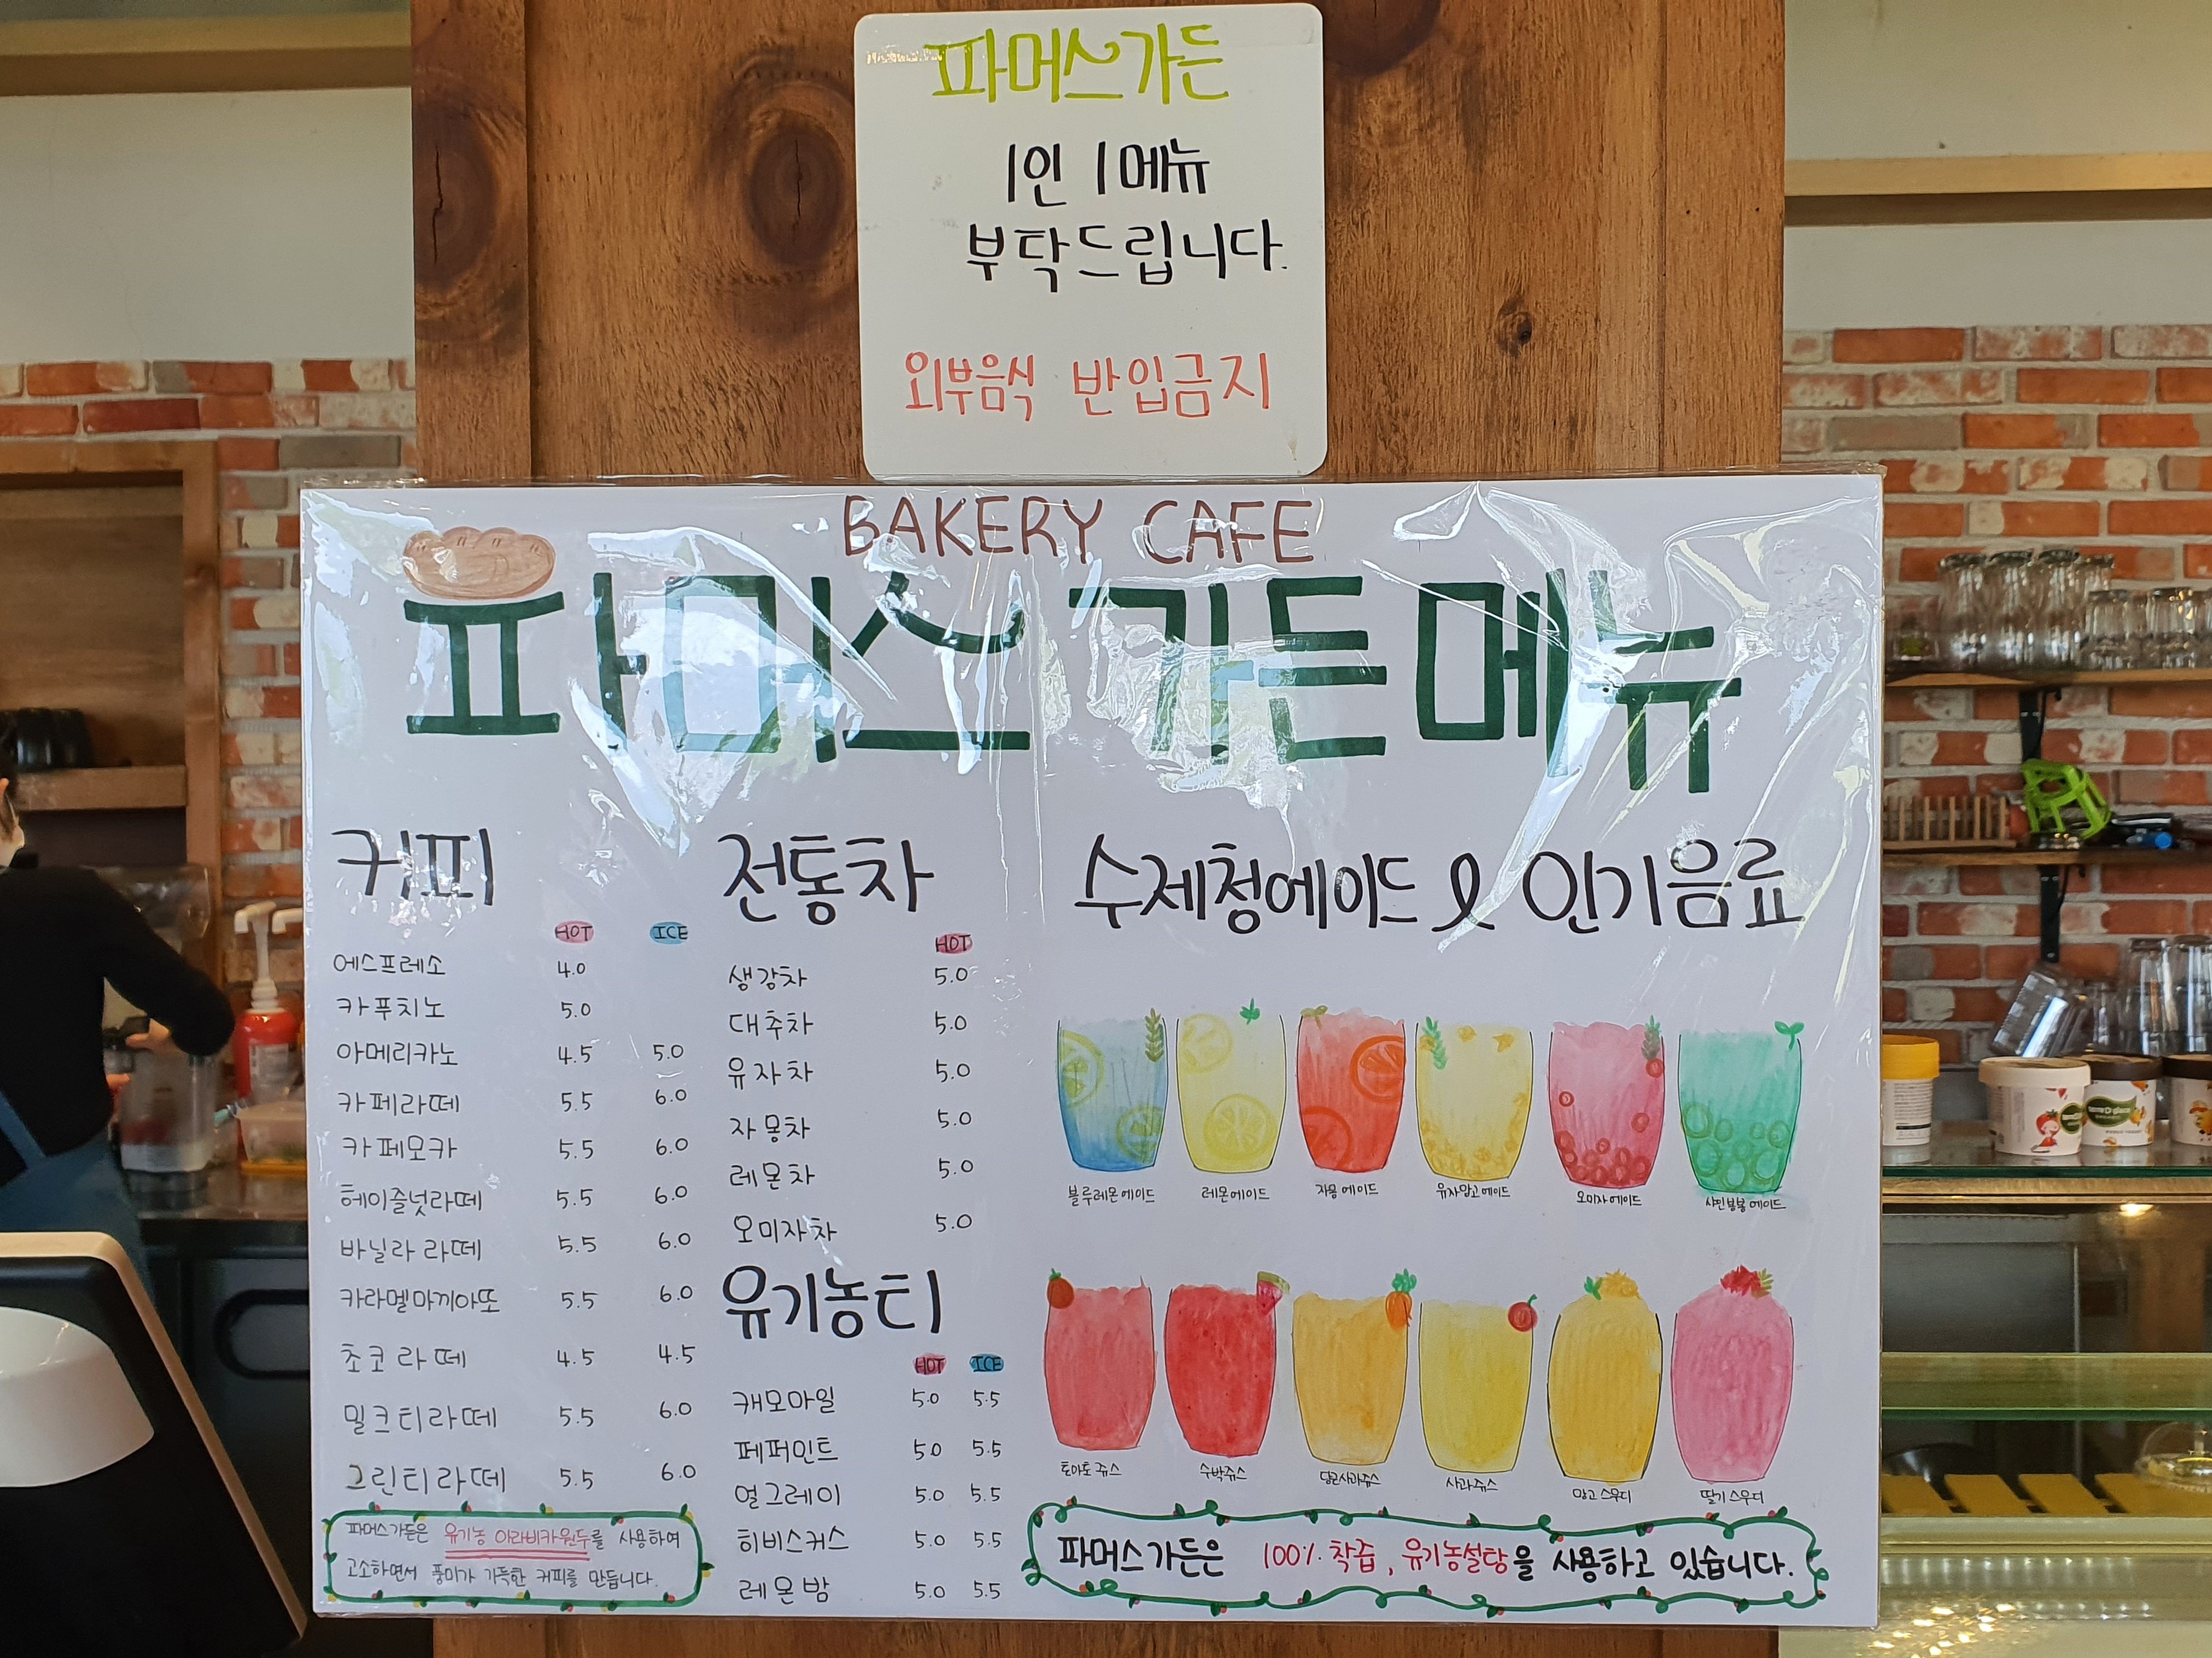 파머스가든
1인 1메뉴
부탁드립니다.
외부음식 반입금지
BAKERY CAFE
파머스가든메뉴
커피
HOT ICE
에스프레소 4.0
카푸치노 5.0
아메리카노 4.5 5.0
카페라떼 5.5 6.0
카페모카 5.5 6.0
헤이즐넛라떼 5.5 6.0
바닐라 라떼 5.5 6.0
카라멜마끼아또 5.5 6.0
초코라떼 4.5 4.5
밀크티라떼 5.5 6.0
그린티라떼 5.5 6.0
파머스가든은 유기농 아라비카원두를 사용하여
고소하면서 풍미가 가득한 커피를 만듭니다.
전통차
HOT
생강차 5.0
대추차 5.0
유자차 5.0
자몽차 5.0
레몬차 5.0
오미자차 5.0
유기농티
HOT ICE
캐모마일 5.0 5.5
페퍼민트 5.0 5.5
얼그레이 5.0 5.5
히비스커스 5.0 5.5
레몬밤 5.0 5.5
수제청에이드 & 인기음료
블루레몬에이드 레몬에이드 자몽에이드 유자망고에이드 오미자에이드 샤인봉봉에이드
토마토쥬스 수박쥬스 당근사과쥬스 사과쥬스 망고스무디 딸기스무디
파머스가든은 100% 착즙, 유기농설탕을 사용하고 있습니다.